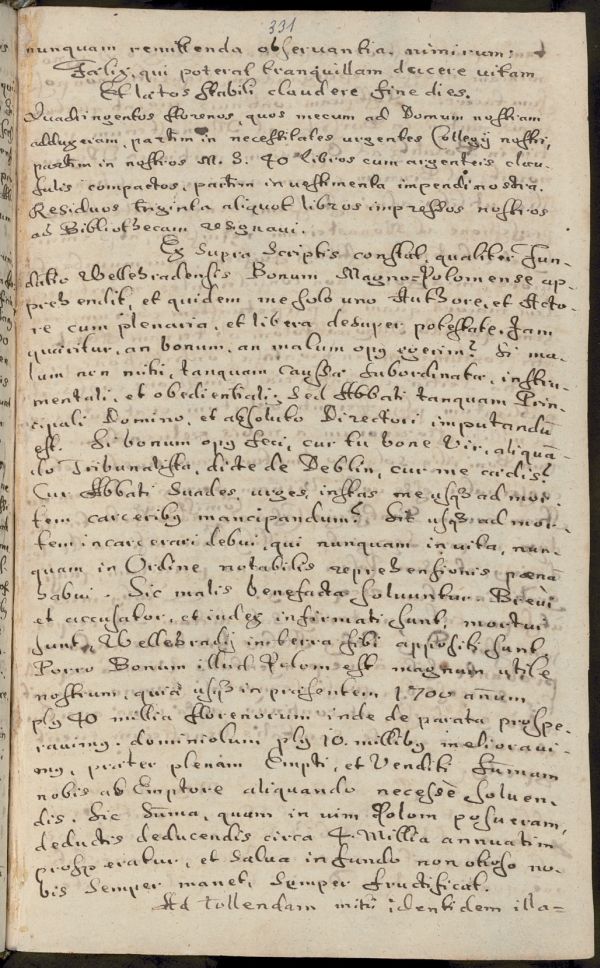 331
nunquam remittenda observantia. nimirum:
Fælix, qui poterat tranquillam ducere uitam
Et lætos stabili claudere fine dies.
Quadringentos florenos, quos mecum ad Domum nostram
adduxeram, partim in necessitates urgentes Collegij nostri,
partim in nostros M. S. 40 libros cum argenteis clau-
sulis compactos, partim in uestimenta impendi nostra.
Residuos triginta aliquot libros impressos nostros
ad Bibliothecam resignavi.
Ex supra scriptis constat, qualiter Fun-
datio Wellehradensis Bonum Magno-Polomense ap-
prehendit, et quidem me solo uno Authore, et Acto-
re cum plenaria, et libera desuper potestate. Jam
quæritur, an bonum, an malum opq egerim? Si ma-
lum non mihi, tanquam caussæ subordinatæ, instru-
mentali, et obedientiali; sed Abbati tanquam Prin-
cipali Domino, et absoluto Directori imputandū
est. Si bonum opq feci, cur tu bone Vir, aliquā-
do Tribunalista, dicte de Deblin, cur me cædis?
Cur Abbati suades, urges, instas me usq ad mor-
tem carceribq mancipandum? Sic usq ad mor-
tem incarcerari debui, qui nunquam in uita, nun-
quam in Ordine notabilis reprehensionis pœnā
habui. Sic malis benefacta soluuntur. Brevi
et accusator, et iudex infirmati sunt, mortui
sunt, Wellehradij in terra sibi appositi sunt.
Porro Bonum illud Polom est magnum utile
nostrum, quia usq in præsentem 1700 annum
plq 40 millia florenorum inde de parata prospe-
ravimq. dominiolum plq 10. millibq melioravi-
mq, præter plenam Empti, et Venditi summam
nobis ab Emptore aliquando necesse soluen-
dis. Sic suma, quam in uim Polom posueram,
deductis deducendis circa 4. Millia annuatim
prosperatur, et salva in fundo non otioso no-
bis semper manet, semper fructificat.
Ad tollendam mihi identidem illa=